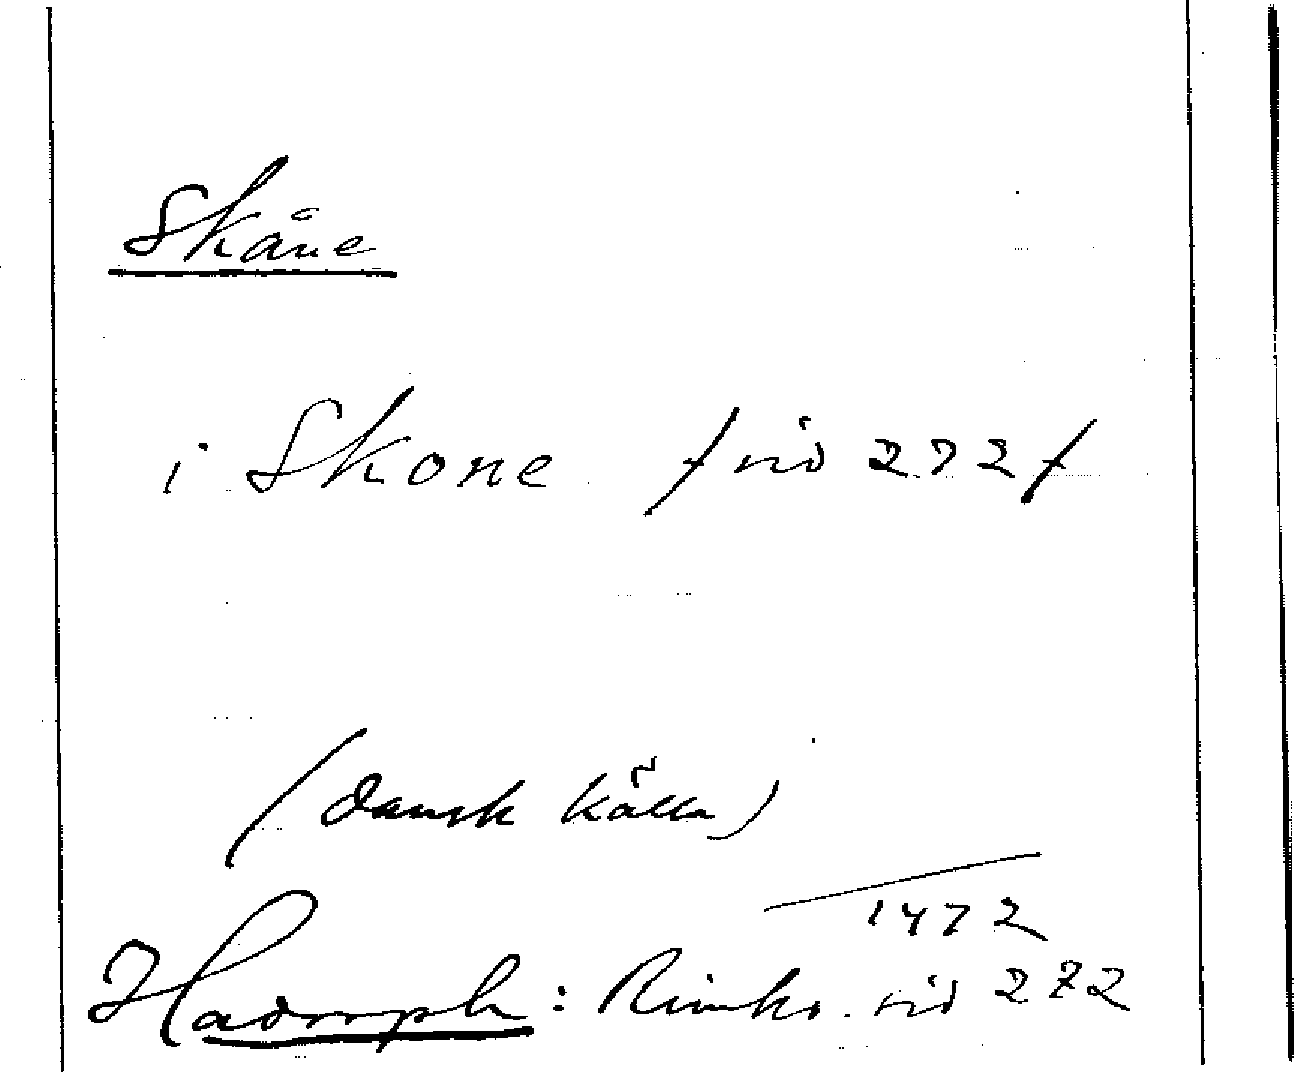 Skåne
i Skone / sid 272 /
(dansk källa)
1472
Hadorph: Rimkr. sid 272